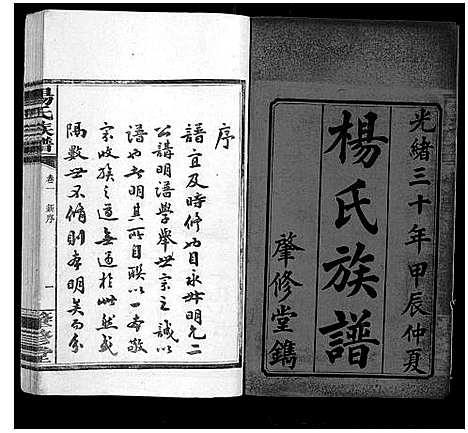 光緒三十年甲辰仲夏
楊氏族譜
肇修堂鐫
序
譜宜及時修乃目永世明允二
公講明譜學舉世宗之誠以
譜也者明其所自联以一本敬
宗收族之道無过於此然或
隔数世不修則本明矣而分
楊氏族譜
卷一
新序
一
肇修堂